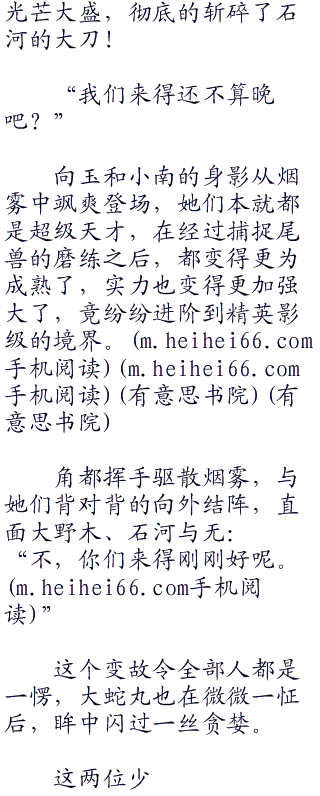 光芒大盛，彻底的斩碎了石
河的大刀！
“我们来得还不算晚
吧？”
向玉和小南的身影从烟
雾中飒爽登场，她们本就都
是超级天才，在经过捕捉尾
兽的磨练之后，都变得更为
成熟了，实力也变得更加强
大了，竟纷纷进阶到精英影
级的境界。(m.heihei66.com
手机阅读)(m.heihei66.com
手机阅读)(有意思书院)(有
意思书院)
角都挥手驱散烟雾，与
她们背对背的向外结阵，直
面大野木、石河与无：
“不，你们来得刚刚好呢。
(m.heihei66.com手机阅
读)”
这个变故令全部人都是
一愣，大蛇丸也在微微一怔
后，眸中闪过一丝贪婪。
这两位少